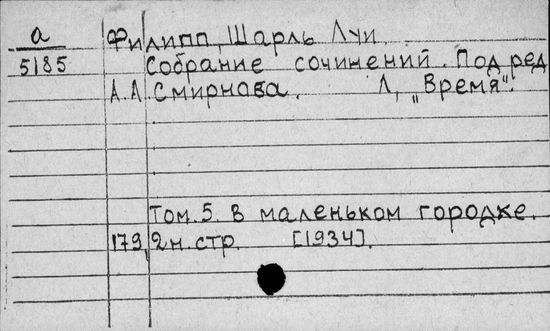 а Филипп, Шарль Луи
5185 Собрание сочинений. Под ред
А.А. Смирнова. Л, „Время".
Том. 5. В маленьком городке.
179, 2н. стр. [1934].